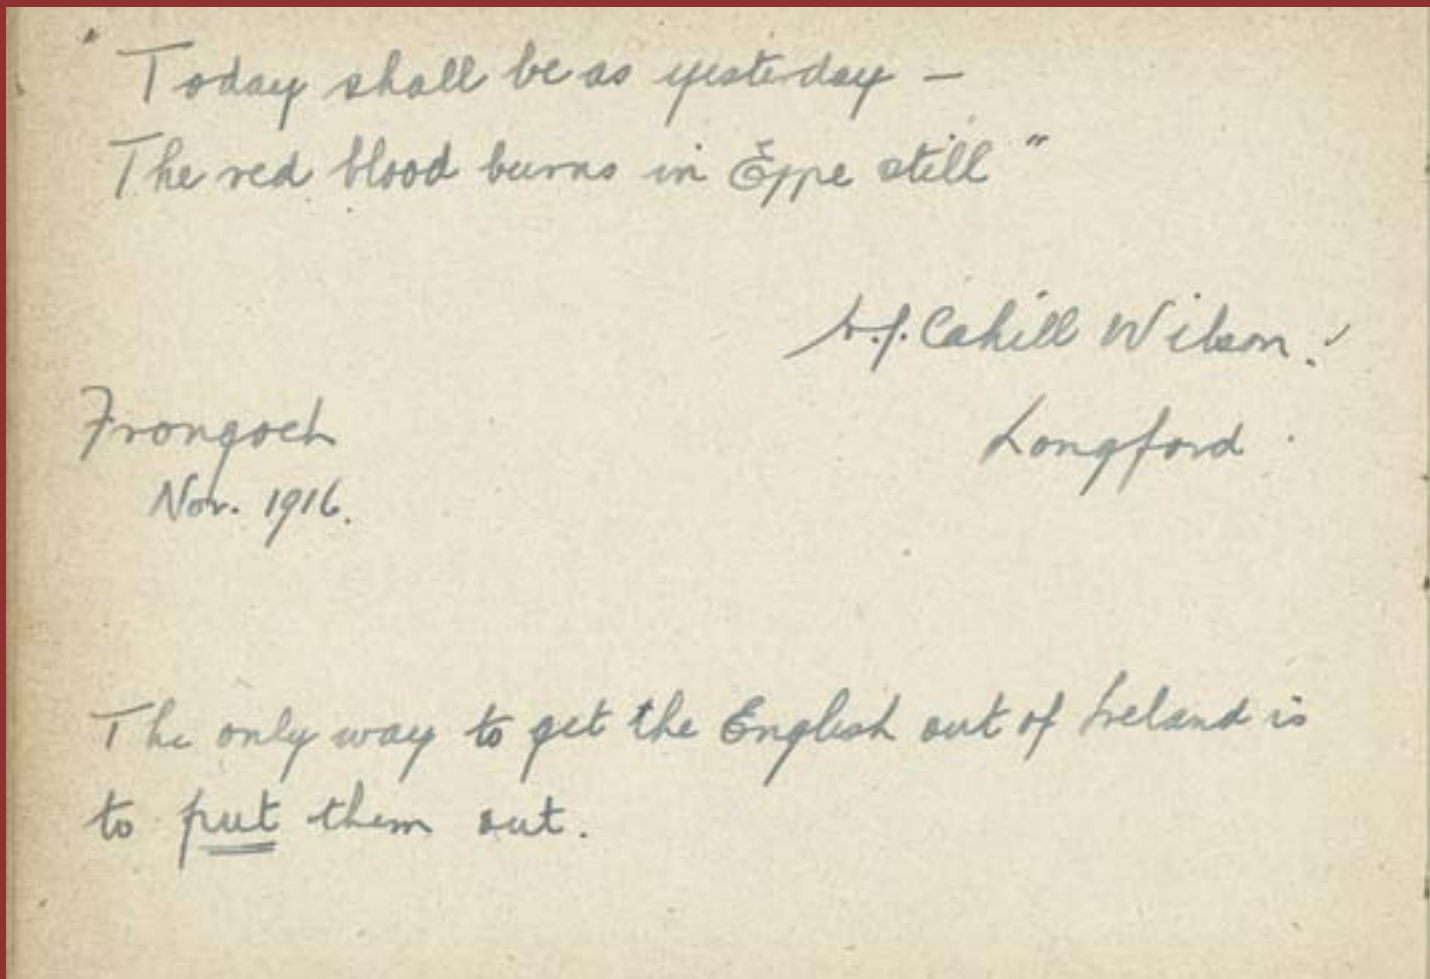 "Today shall be as yesterday —
The red blood burns in Éire still"
Cahill Wilson.
Longford
Frongoch
Nov. 1916.
The only way to get the English out of Ireland is
to put them out.